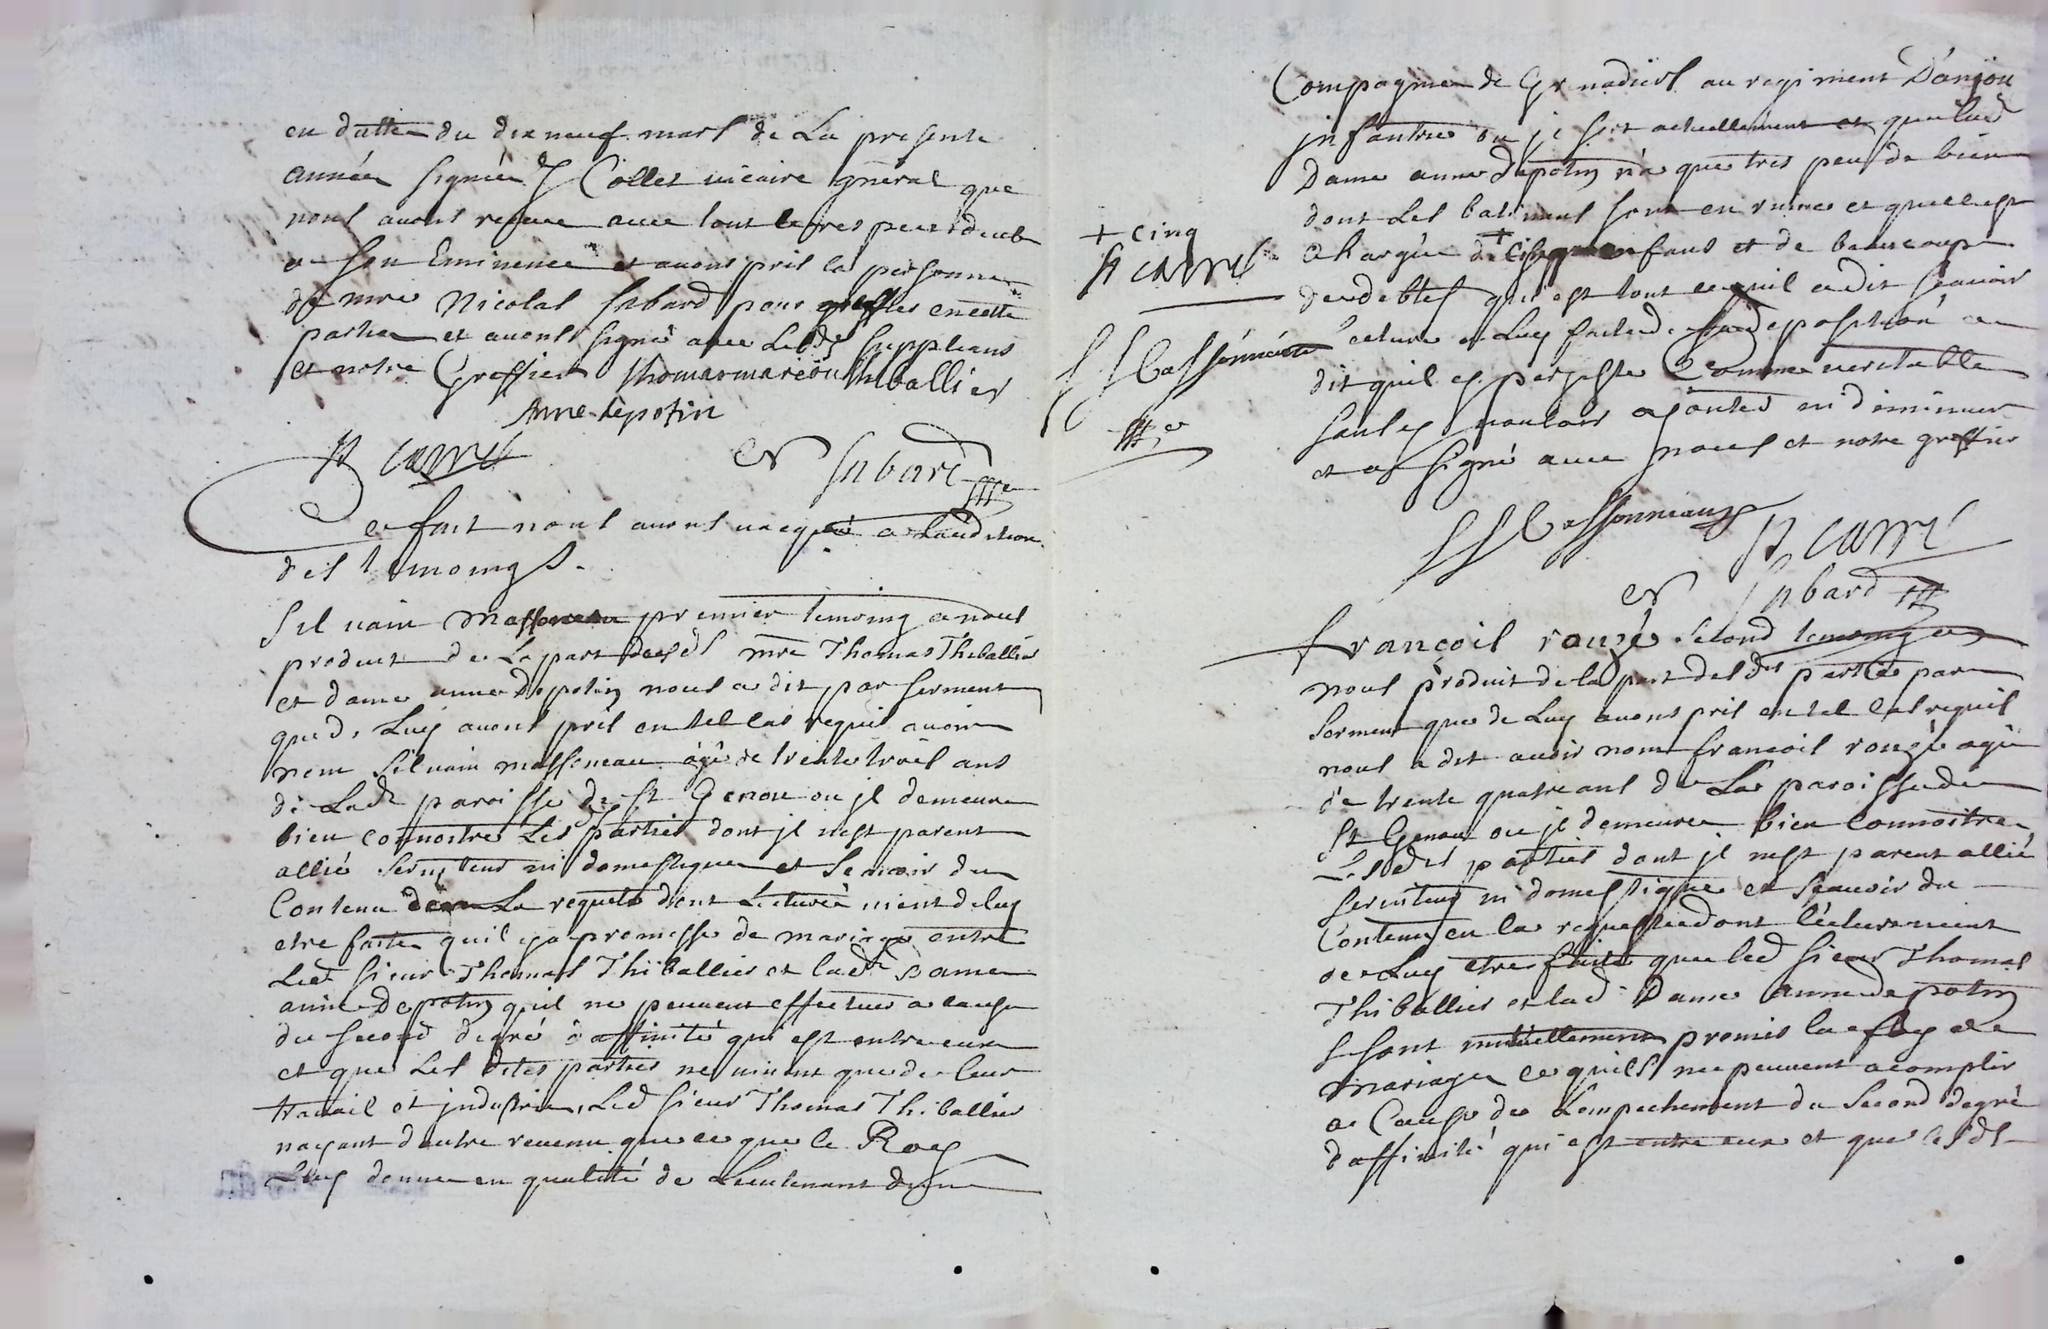 en datte du dix neuf mars de La presente
année signée Collet vicaire general que
nous avons reçeue avec tout le respect deub
a son Eminence et avons pris la personne
de mre Nicolas Sabard pour greffier en cette
partie et avons signé avec Lesds suppliants
et notre Greffier thomas marcou thiballier
Anne depotin
H carré
N Sabard Gre
Ce fait nous avons vacqué a Laudition
des temoings.
Silvain Massoneau premier temoing a nous
produit de La part desds mre Thomas Thiballier
et dame anne Depotin nous a dit par serment
que de Luy avons pris en tel cas requis avoir
nom silvain massoneau agé de trente trois ans
de Lade paroisse de St Genou ou jl demeure
bien connoitre Les parties dont jl nest parent
allié serviteur ni domestique et scavoir du
Contenu La requete dont Lecture vient de luy
etre faite quil y a promesse de mariage entre
Led sieur Thomas Thiballier et lade Dame
anne Depotin quil ne peuvent effectuer a cause
du second degré d'affinité qui est entre eux
et que Les dites parties ne vivent que de leur
travail et industrie, Led sieur Thomas Thiballier
nayant dautre revenu que ce que le Roy
Luy donne en qualité de Lieutenant dune
Compagnie de Grenadiers au regiment D'anjou
jnfantrie ou jl sert actuellement et que lad
Dame anne Depotin n'a que tres peu de bien
dont Les batimens sont en ruine et quelle est
Chargée de + enfans et de beaucoup
de debtes qui est tout ce quil a dit scavoir
+ cinq
H carré
Lecture a Luy faite de sa deposition a
dit quil y persiste Comme veritable
sans y vouloir ajouter ni diminuer
et a signé avec nous et notre greffier
S Massonneau
Gre
S Massonneau
H carré
N Sabard Gre
francois rouzé second temoing a
nous produit de la part desdes parties par
serment que de Luy avons pris en tel cas requis
nous a dit avoir nom francois rouzé agé
de trente quatre ans de La paroisse de
St Genou ou jl demeure bien connoitre
Lesdes parties dont jl nest parent allié
serviteur ni domestique et scavoir du
Contenu en la requeste dont lecture vient
de Luy etre faite que led sieur Thomas
Thiballier et lade Dame anne depotin
se sont mutuellement promis la foy de
mariage ce quils ne peuvent acomplir
a Cause de Lempechement du second degré
d'affinité qui est entre eux et que lesds